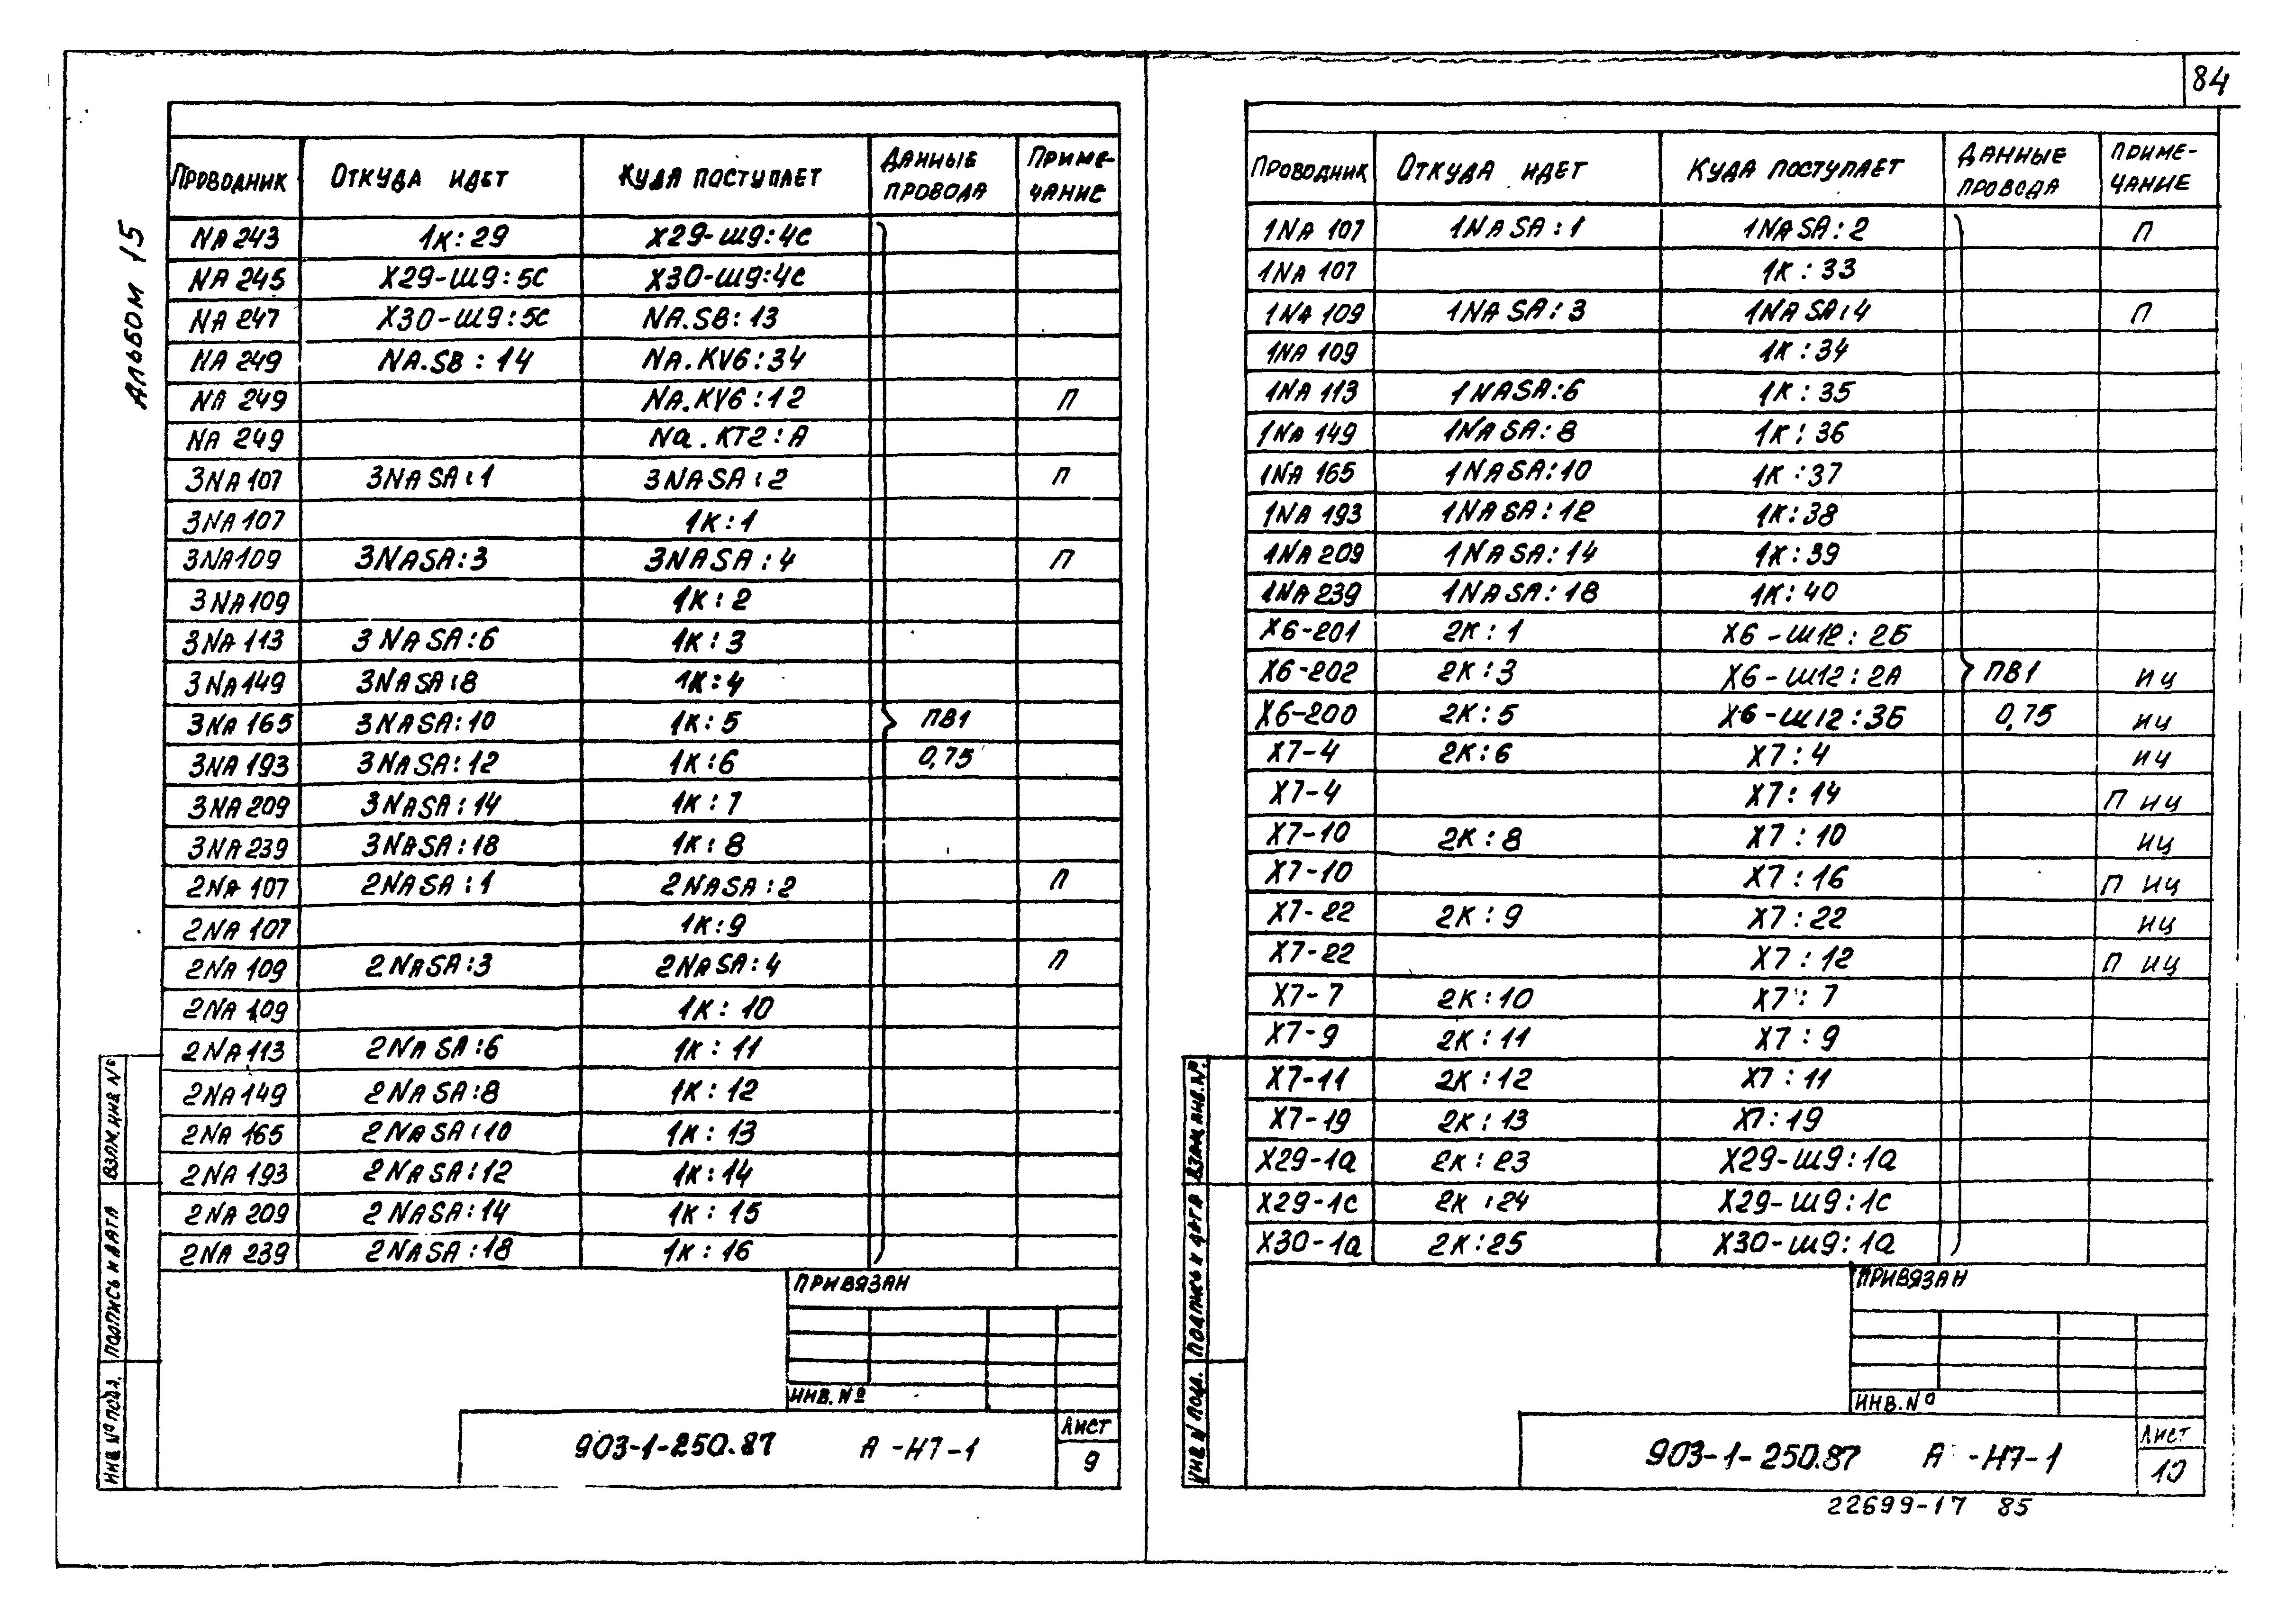 84
Альбом 15
Проводник Откуда идет Куда поступает Данные провода Примечание
NA 243 1К:29 Х29-Ш9:4С
NA 245 Х29-Ш9:5С Х30-Ш9:4С
NA 247 Х30-Ш9:5С NA.SB:13
NA 249 NA.SB:14 NA.KV6:34
NA 249 NA.KV6:12 П
NA 249 Na.KT2:A
3NA 107 3NASA:1 3NASA:2 П
3NA 107 1К:1
3NA109 3NASA:3 3NASA:4 П
3NA109 1К:2
3NA 113 3NASA:6 1К:3
3NA149 3NASA:8 1К:4
3NA 165 3NASA:10 1К:5 ПВ1
3NA 193 3NASA:12 1К:6 0,75
3NA 209 3NASA:14 1К:7
3NA 239 3NASA:18 1К:8
2NA 107 2NASA:1 2NASA:2 П
2NA 107 1К:9
2NA 109 2NASA:3 2NASA:4 П
2NA 109 1К:10
2NA113 2NASA:6 1К:11
2NA149 2NASA:8 1К:12
2NA 165 2NASA:10 1К:13
2NA 193 2NASA:12 1К:14
2NA 209 2NASA:14 1К:15
2NA 239 2NASA:18 1К:16
Привязан
Инв. №
903-1-250.87 А -Н7-1
Лист
9
Взам. инв №
Подпись и дата
Инв № подл.
Проводник Откуда идет Куда поступает Данные провода Примечание
1NA 107 1NASA:1 1NASA:2 П
1NA 107 1К:33
1NA 109 1NASA:3 1NASA:4 П
1NA 109 1К:34
1NA 113 1NASA:6 1К:35
1NA 149 1NASA:8 1К:36
1NA 165 1NASA:10 1К:37
1NA 193 1NASA:12 1К:38
1NA 209 1NASA:14 1К:39
1NA 239 1NASA:18 1К:40
Х6-201 2К:1 Х6-Ш12:2Б
Х6-202 2К:3 Х6-Ш12:2А ПВ1 ИЦ
Х6-200 2К:5 Х6-Ш12:3Б 0,75 ИЦ
Х7-4 2К:6 Х7:4 ИЦ
Х7-4 Х7:14 П ИЦ
Х7-10 2К:8 Х7:10 ИЦ
Х7-10 Х7:16 П ИЦ
Х7-22 2К:9 Х7:22 ИЦ
Х7-22 Х7:12 П ИЦ
Х7-7 2К:10 Х7:7
Х7-9 2К:11 Х7:9
Х7-11 2К:12 Х7:11
Х7-19 2К:13 Х7:19
Х29-1а 2К:23 Х29-Ш9:1а
Х29-1с 2К:24 Х29-Ш9:1с
Х30-1а 2К:25 Х30-Ш9:1а
Привязан
Инв. №
903-1-250.87 А -Н7-1
Лист
10
Взам. инв. №
Подпись и дата
Инв № подл.
22699-17 85